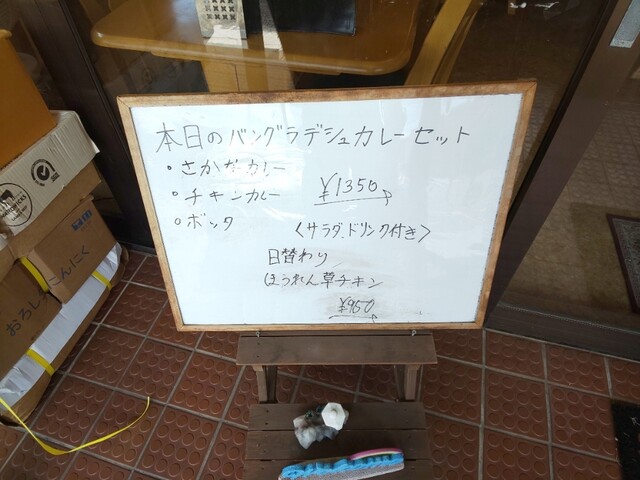 本日のバングラデシュカレーセット
・さかなカレー
・チキンカレー ¥1350
・ボッタ
〈サラダ、ドリンク付き〉
日替わり
ほうれん草チキン
¥950
おろしにんにく